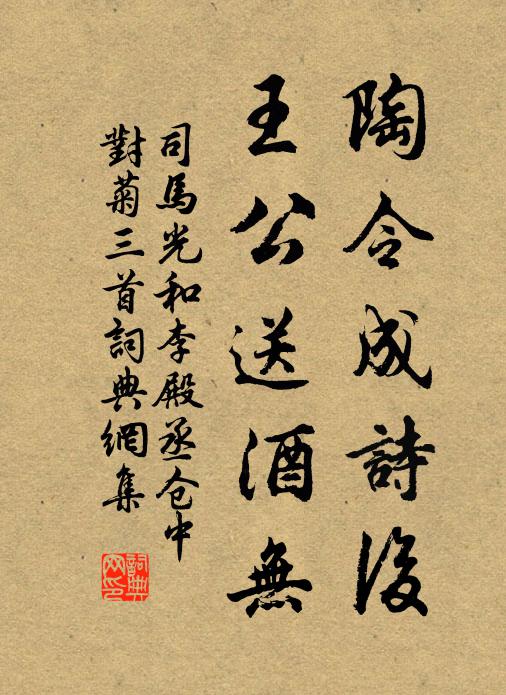 陶令成詩後
王公送酒無
司馬光和李殿丞仓中
對菊三首詞典網集
詞典
网印